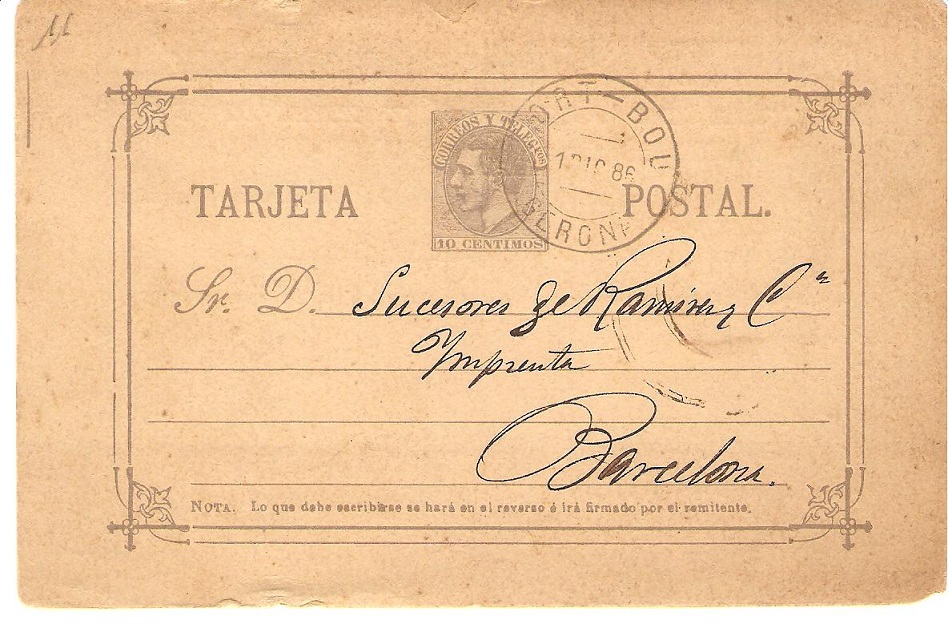 CORREOS Y TELEGFOS
10 CENTIMOS
PORT-BOU
1 DIC 86
GERONA
TARJETA POSTAL.
Sr. D. Sucesores de Ramirez y Cª
Imprenta
Barcelona.
NOTA. Lo que debe escribirse se hará en el reverso é irá firmado por el remitente.